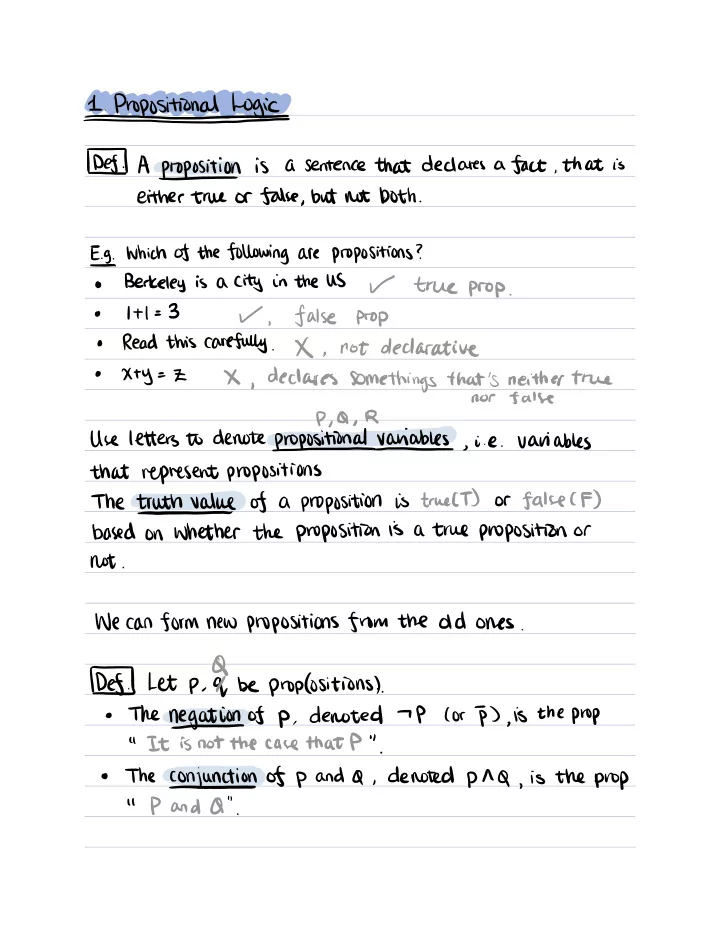 1 Propositional Logic
Def. A proposition is a sentence that declares a fact, that is
either true or false, but not both.
E.g. Which of the following are propositions?
• Berkeley is a city in the US ✓ true prop.
• 1+1 = 3 ✓, false prop
• Read this carefully. X, not declarative
• x+y = z X, declares somethings that's neither true
nor false
P, Q, R
Use letters to denote propositional variables, i.e. variables
that represent propositions
The truth value of a proposition is true(T) or false(F)
based on whether the proposition is a true proposition or
not.
We can form new propositions from the old ones.
Q
Def. Let p, q be prop(ositions).
• The negation of p, denoted ¬P (or p̄), is the prop
" It is not the case that P ".
• The conjunction of p and Q, denoted p∧Q, is the prop
" P and Q".